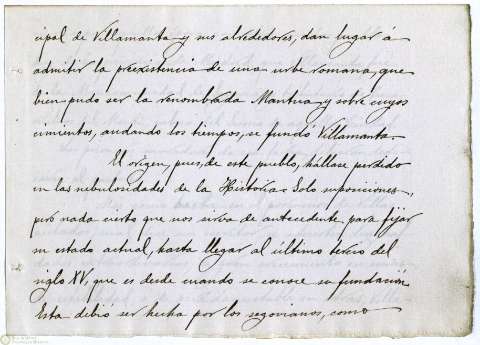 cipal de Villamanta y sus alrededores, dan lugar á
admitir la preexistencia de una urbe romana, que
bien pudo ser la renombrada Mantua y sobre cuyos
cimientos, andando los tiempos, se fundó Villamanta.
El origen, pues, de este pueblo, hállase perdido
en las nebulosidades de la Historia. Solo suposiciones,
pero nada cierto que nos sirva de antecedente para fijar
su estado actual, hasta llegar al último tercio del
siglo XV, que es desde cuando se conoce su fundación
Esta debio ser hecha por los segovianos, como